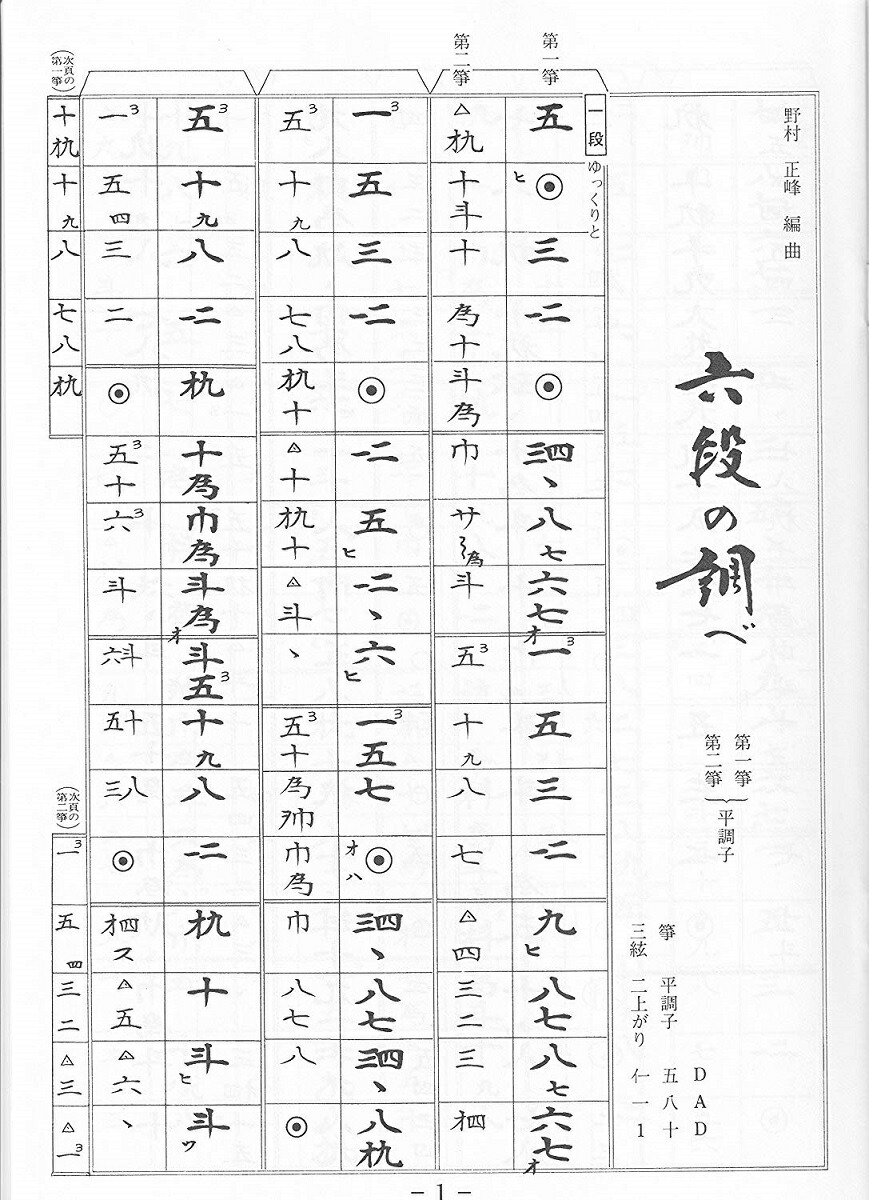 野村 正峰 編曲
六段の調べ
第一箏
第二箏
平調子
箏 平調子 五八十 DAD
三絃 二上がり 一1
一段
ゆっくりと
第一箏
五 ヒ ◉ 三 一二 ◉ 三四ヽ 八七 六七オ 一3 五 三 一二 九ヒ 八七 八七 六七オ
第二箏
△ 十斗 十 為十 斗為 巾 サ為 斗 五3 十九 八 七 △四 三二 三
一3 五 三 一二 ◉ 一二 五ヒ 一二ヽ 六ヒ 一3五 七 オ◉ハ 三四ヽ 八七 三四ヽ 八
五3 十九 八 七八 十 △十 十 △斗 ヽ 五3十 為 巾為 巾 八七 八 ◉
五3 十九 八 一二 十為 巾為 斗為オ 斗五3 十九 八 一二 十 斗ヒ 斗ワ
一3 五四 三 二 ◉ 五3十 六3 斗 六斗 五十 三八 ◉ ス △五 △六 ヽ
(次頁の第一箏)
十 十九 八 七八
(次頁の第二箏)
一3 五四 三二 △三 △一3
－1－